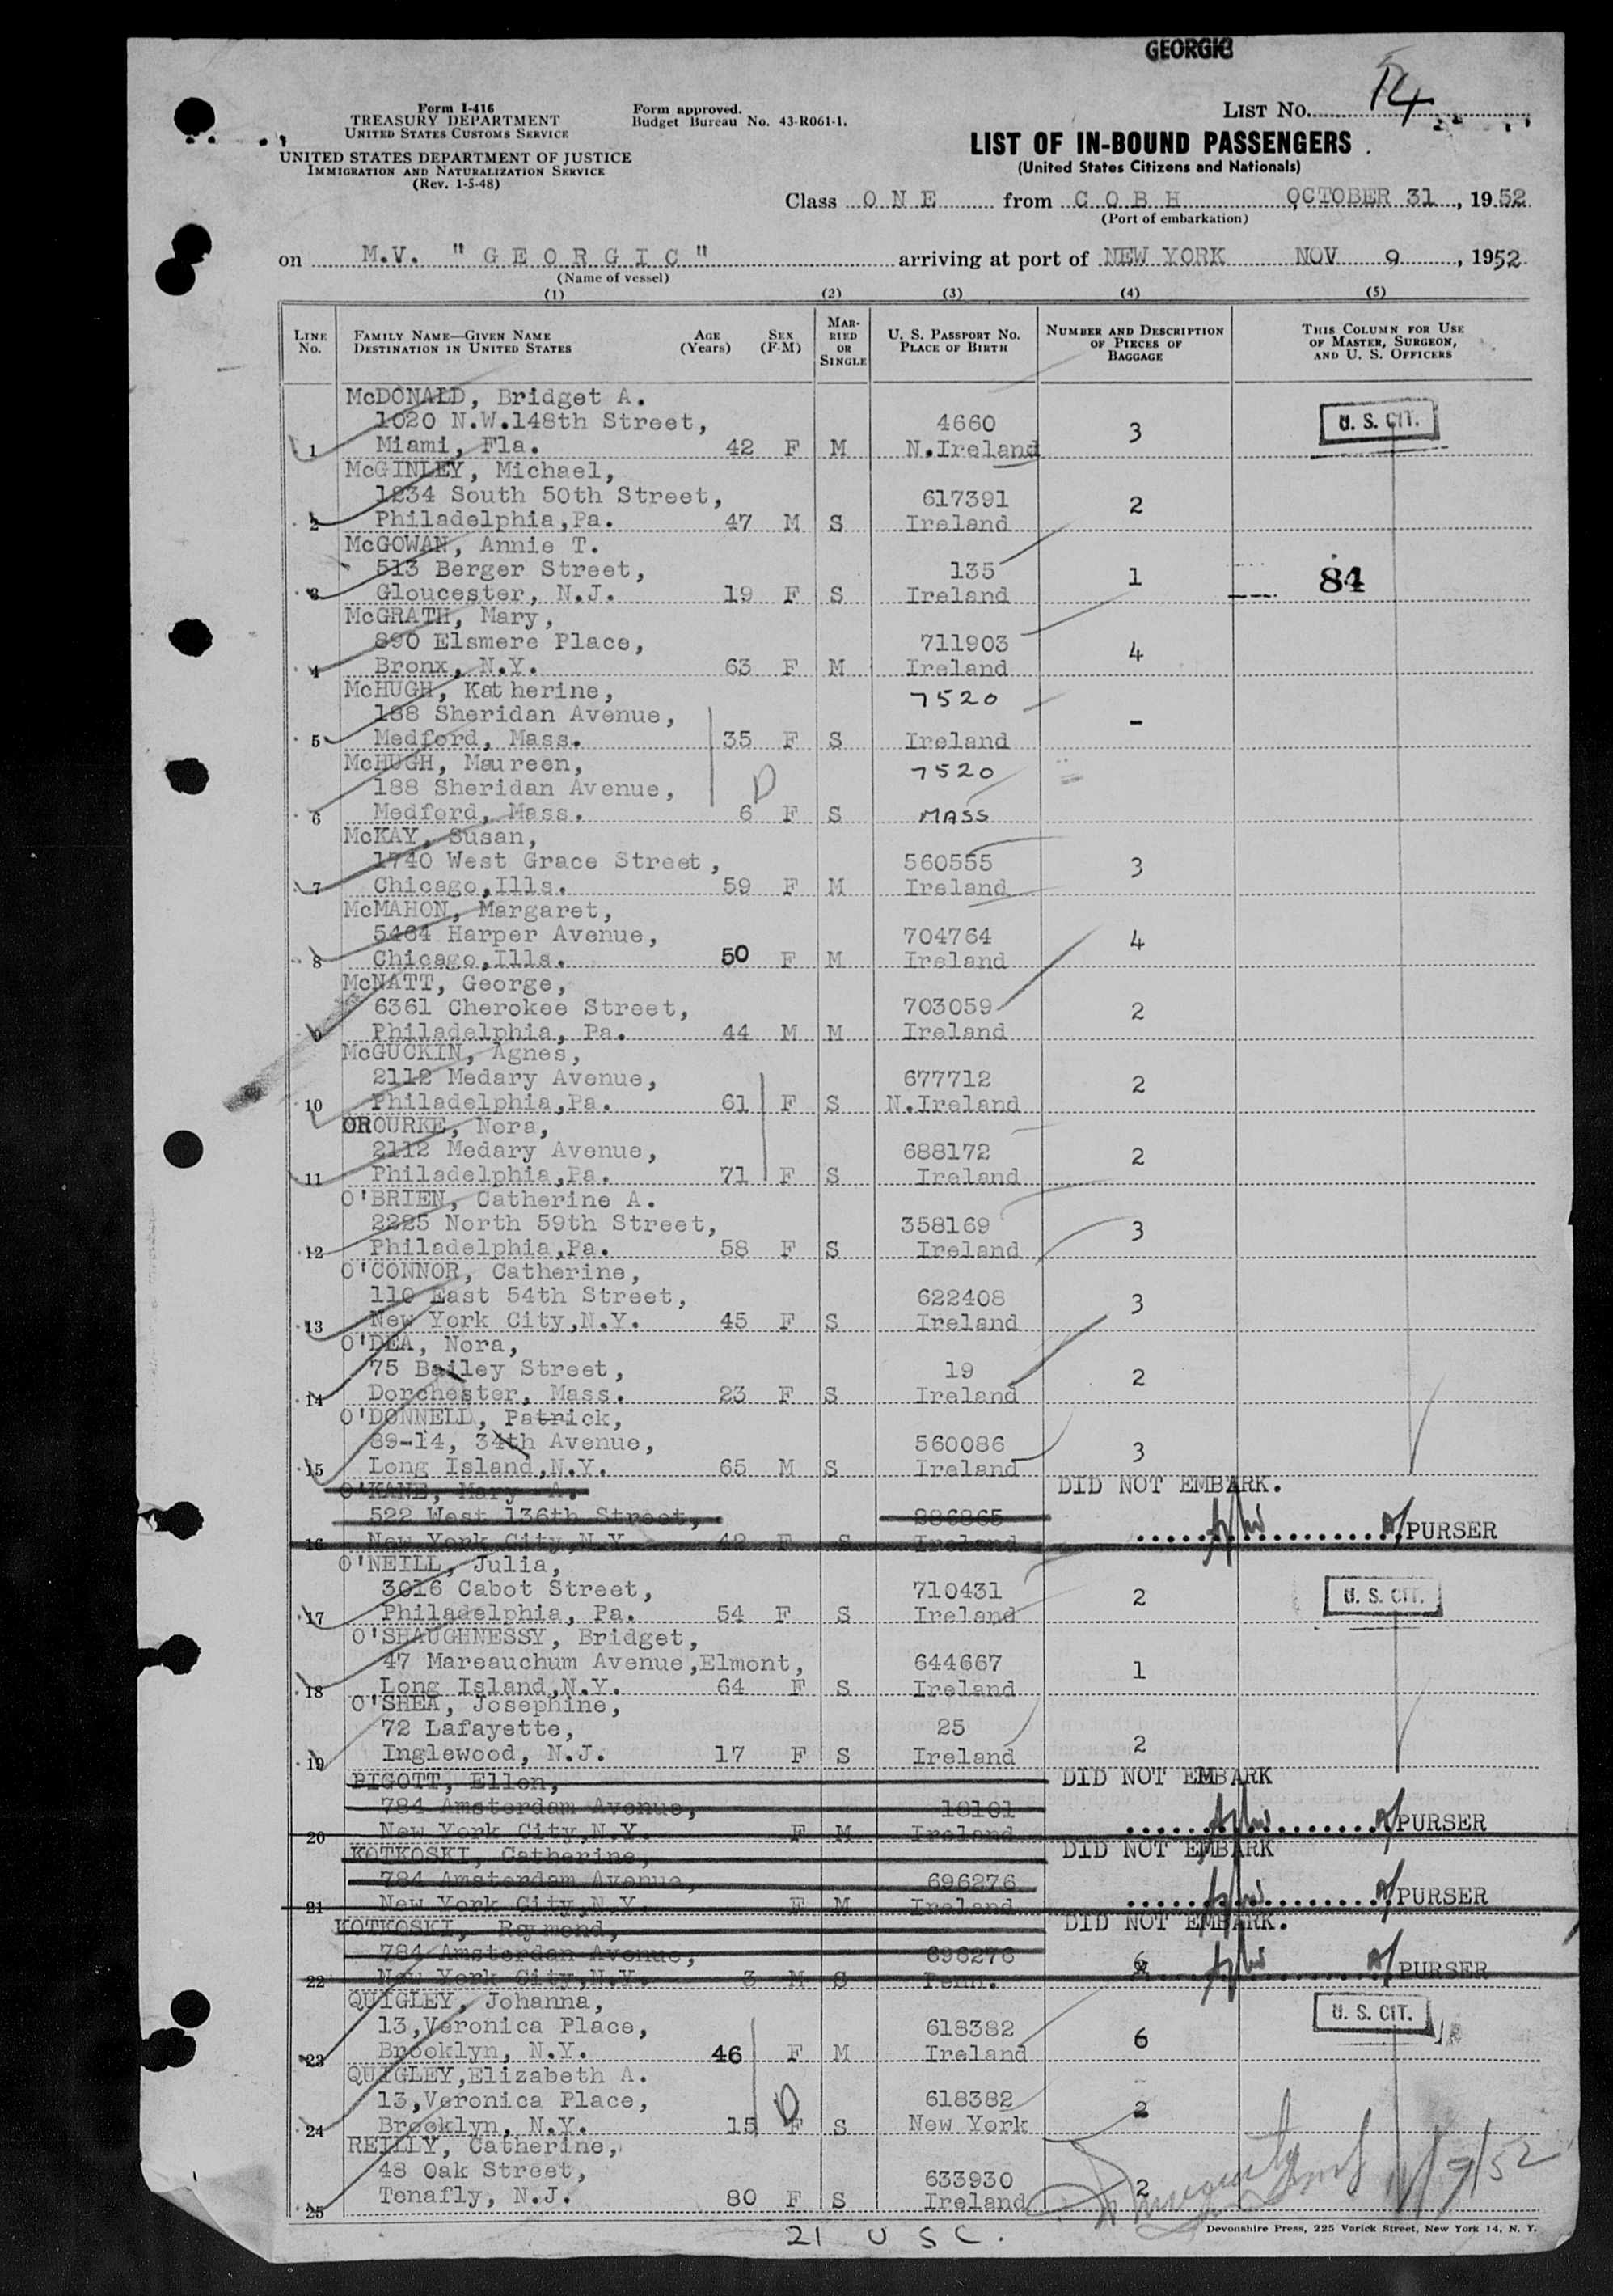 GEORGIC
Form I-416
TREASURY DEPARTMENT
UNITED STATES CUSTOMS SERVICE
UNITED STATES DEPARTMENT OF JUSTICE
IMMIGRATION AND NATURALIZATION SERVICE
(Rev. 1-5-48)
Form approved.
Budget Bureau No. 43-R061-1.
LIST No. 14
LIST OF IN-BOUND PASSENGERS
(United States Citizens and Nationals)
Class O N E from C O B H OCTOBER 31, 1952
(Port of embarkation)
on M.V. " G E O R G I C " arriving at port of NEW YORK NOV 9, 1952
(Name of vessel)
(1) (2) (3) (4) (5)
LINE No. FAMILY NAME—GIVEN NAME DESTINATION IN UNITED STATES AGE (Years) SEX (F-M) MARRIED OR SINGLE U. S. PASSPORT NO. PLACE OF BIRTH NUMBER AND DESCRIPTION OF PIECES OF BAGGAGE THIS COLUMN FOR USE OF MASTER, SURGEON, AND U. S. OFFICERS
McDONALD, Bridget A.
1020 N.W.148th Street, 4660 3 U. S. CIT.
1 Miami, Fla. 42 F M N.Ireland
McGINLEY, Michael,
1234 South 50th Street, 617391 2
2 Philadelphia,Pa. 47 M S Ireland
McGOWAN, Annie T.
513 Berger Street, 135 1 84
3 Gloucester, N.J. 19 F S Ireland
McGRATH, Mary,
890 Elsmere Place, 711903 4
4 Bronx, N.Y. 63 F M Ireland
McHUGH, Katherine, 7520
188 Sheridan Avenue, -
5 Medford, Mass. 35 F S Ireland
McHUGH, Maureen, 7520
188 Sheridan Avenue, D
6 Medford, Mass. 6 F S MASS
McKAY, Susan,
1740 West Grace Street, 560555 3
7 Chicago,Ills. 59 F M Ireland
McMAHON, Margaret,
5464 Harper Avenue, 704764 4
8 Chicago,Ills. 50 F M Ireland
McNATT, George,
6361 Cherokee Street, 703059 2
9 Philadelphia, Pa. 44 M M Ireland
McGUCKIN, Agnes,
2112 Medary Avenue, 677712 2
10 Philadelphia,Pa. 61 F S N.Ireland
OROURKE, Nora,
2112 Medary Avenue, 688172 2
11 Philadelphia,Pa. 71 F S Ireland
O'BRIEN, Catherine A.
2225 North 59th Street, 358169 3
12 Philadelphia,Pa. 58 F S Ireland
O'CONNOR, Catherine,
110 East 54th Street, 622408 3
13 New York City,N.Y. 45 F S Ireland
O'DEA, Nora,
75 Bailey Street, 19 2
14 Dorchester, Mass. 23 F S Ireland
O'DONNELL, Patrick,
89-14, 34th Avenue, 560086 3
15 Long Island,N.Y. 65 M S Ireland
O'KANE, Mary A. DID NOT EMBARK.
522 West 136th Street, 286865 PURSER
16 New York City,N.Y. 42 F S Ireland
O'NEILL, Julia,
3016 Cabot Street, 710431 2 U. S. CIT.
17 Philadelphia, Pa. 54 F S Ireland
O'SHAUGHNESSY, Bridget,
47 Mareauchum Avenue,Elmont, 644667 1
18 Long Island,N.Y. 64 F S Ireland
O'SHEA, Josephine,
72 Lafayette, 25 2
19 Inglewood, N.J. 17 F S Ireland
PIGOTT, Ellen, DID NOT EMBARK
784 Amsterdam Avenue, 18101 PURSER
20 New York City,N.Y. F M Ireland
KOTKOSKI, Catherine, DID NOT EMBARK
784 Amsterdam Avenue, 696276 PURSER
21 New York City,N.Y. F M Ireland
KOTKOSKI, Raymond, DID NOT EMBARK.
784 Amsterdam Avenue, 696276 PURSER
22 New York City,N.Y. 3 M S Penn.
QUIGLEY, Johanna,
13,Veronica Place, 618382 6 U. S. CIT.
23 Brooklyn, N.Y. 46 F M Ireland
QUIGLEY,Elizabeth A.
13,Veronica Place, D 618382 2
24 Brooklyn, N.Y. 15 F S New York
REILLY, Catherine,
48 Oak Street, 633930 2 11/9/52
25 Tenafly, N.J. 80 F S Ireland
21 U S C.
Devonshire Press, 225 Varick Street, New York 14, N. Y.